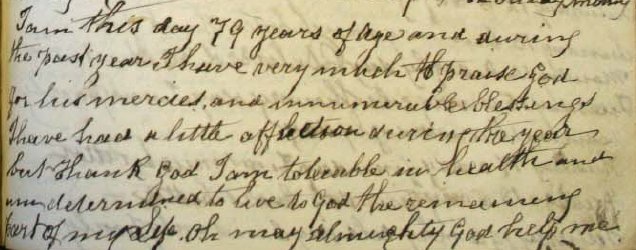 I am this day 79 years of age and during
the past year I have very much to praise God
for his mercies, and innumerable blessings
I have had a little affliction during the year
but thank God I am tolerable in health and
am determined to live to God the remaining
part of my life. Oh may almighty God help me